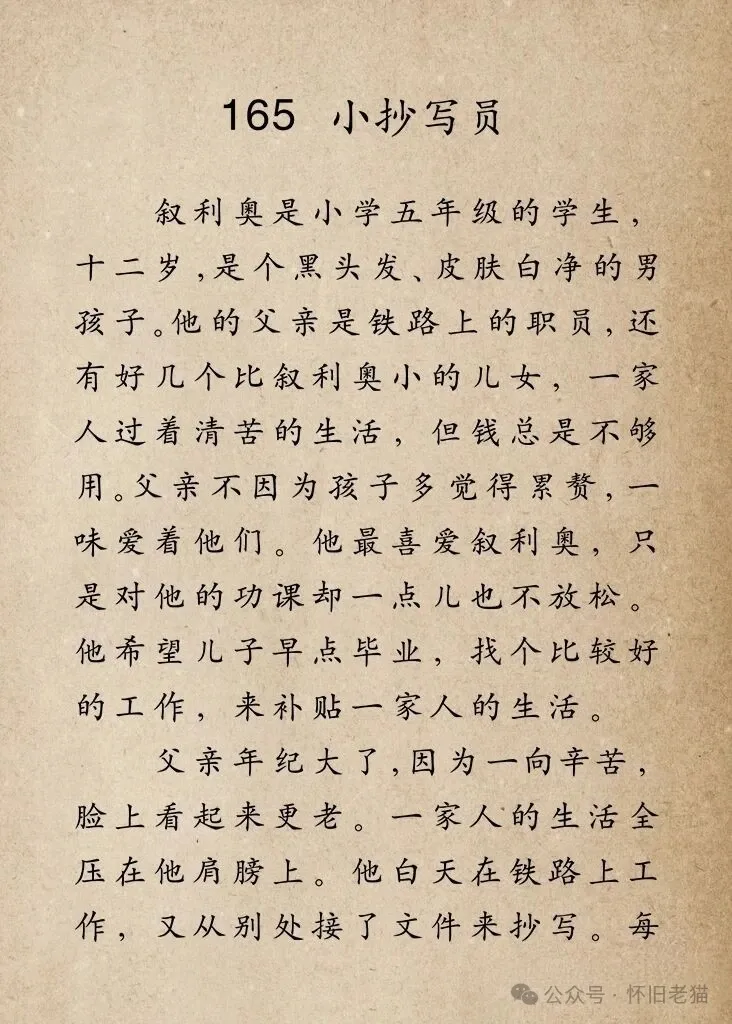 165 小抄写员
叙利奥是小学五年级的学生，
十二岁，是个黑头发、皮肤白净的男
孩子。他的父亲是铁路上的职员，还
有好几个比叙利奥小的儿女，一家
人过着清苦的生活，但钱总是不够
用。父亲不因为孩子多觉得累赘，一
味爱着他们。他最喜爱叙利奥，只
是对他的功课却一点儿也不放松。
他希望儿子早点毕业，找个比较好
的工作，来补贴一家人的生活。
父亲年纪大了，因为一向辛苦，
脸上看起来更老。一家人的生活全
压在他肩膀上。他白天在铁路上工
作，又从别处接了文件来抄写。每
公众号·怀旧老猫